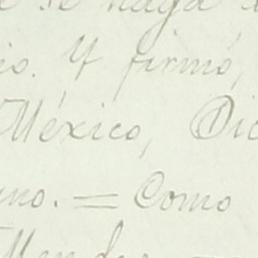 se haya
io. Y firmó,
México, Dic
no. = Como
Mendez